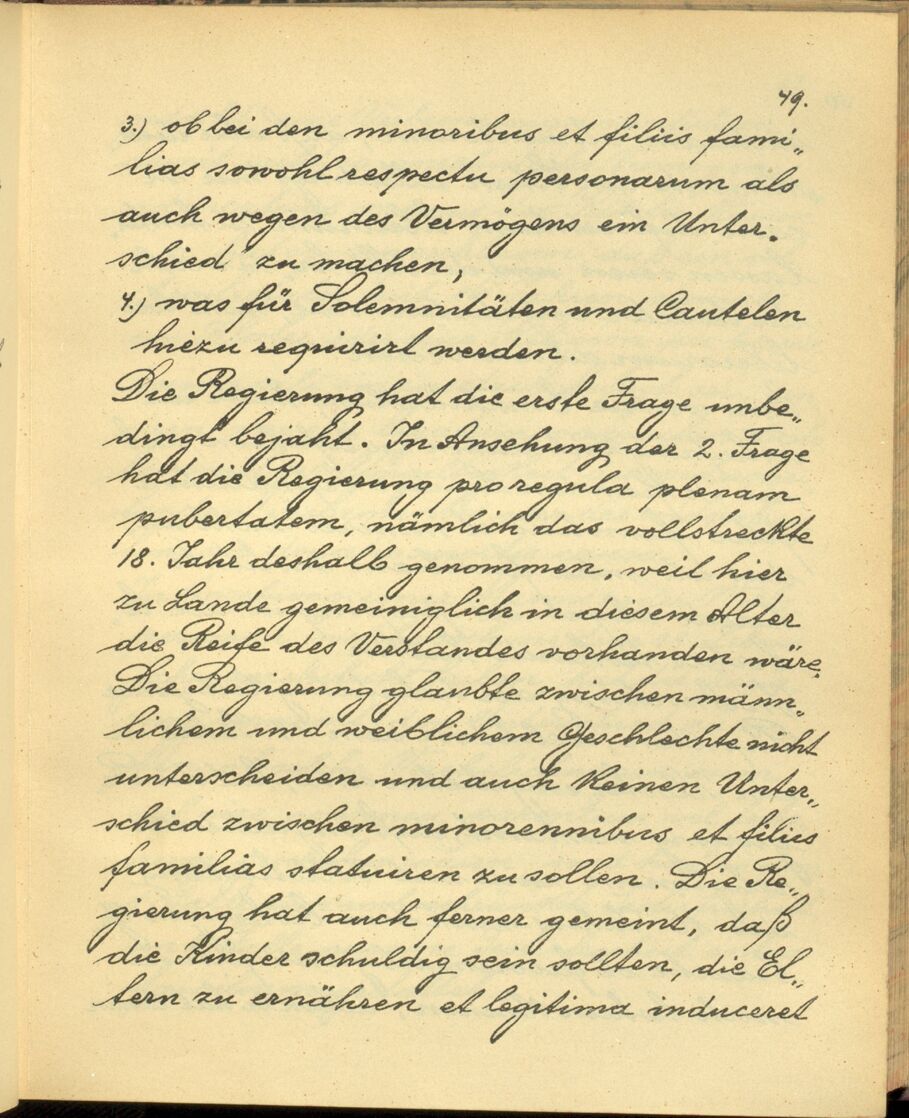 49.
3.) ob bei den minoribus et filiis fami„
lias sowohl respectu personarum als
auch wegen des Vermögens ein Unter„
schied zu machen,
4.) was für Solemnitäten und Cautelen
hiezu requirirt werden.
Die Regierung hat die erste Frage unbe„
dingt bejaht. In Ansehung der 2. Frage
hat die Regierung pro regula plenam
pubertatem, nämlich das vollstreckte
18. Jahr deshalb genommen, weil hier
zu Lande gemeiniglich in diesem Alter
die Reife des Verstandes vorhanden wäre.
Die Regierung glaubte zwischen männ„
lichem und weiblichem Geschlechte nicht
unterscheiden und auch keinen Unter„
schied zwischen minorennibus et filiis
familias statuiren zu sollen. Die Re„
gierung hat auch ferner gemeint, daß
die Kinder schuldig sein sollten, die El„
tern zu ernähren et legitima induceret